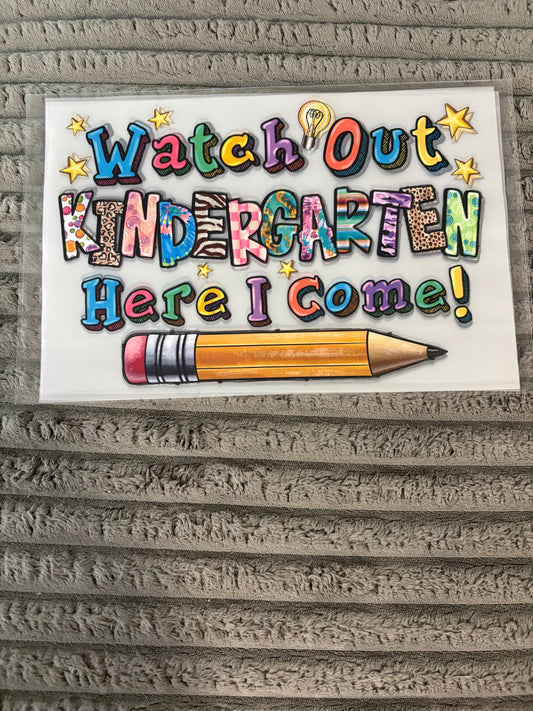 Watch Out
KINDERGARTEN
Here I Come!